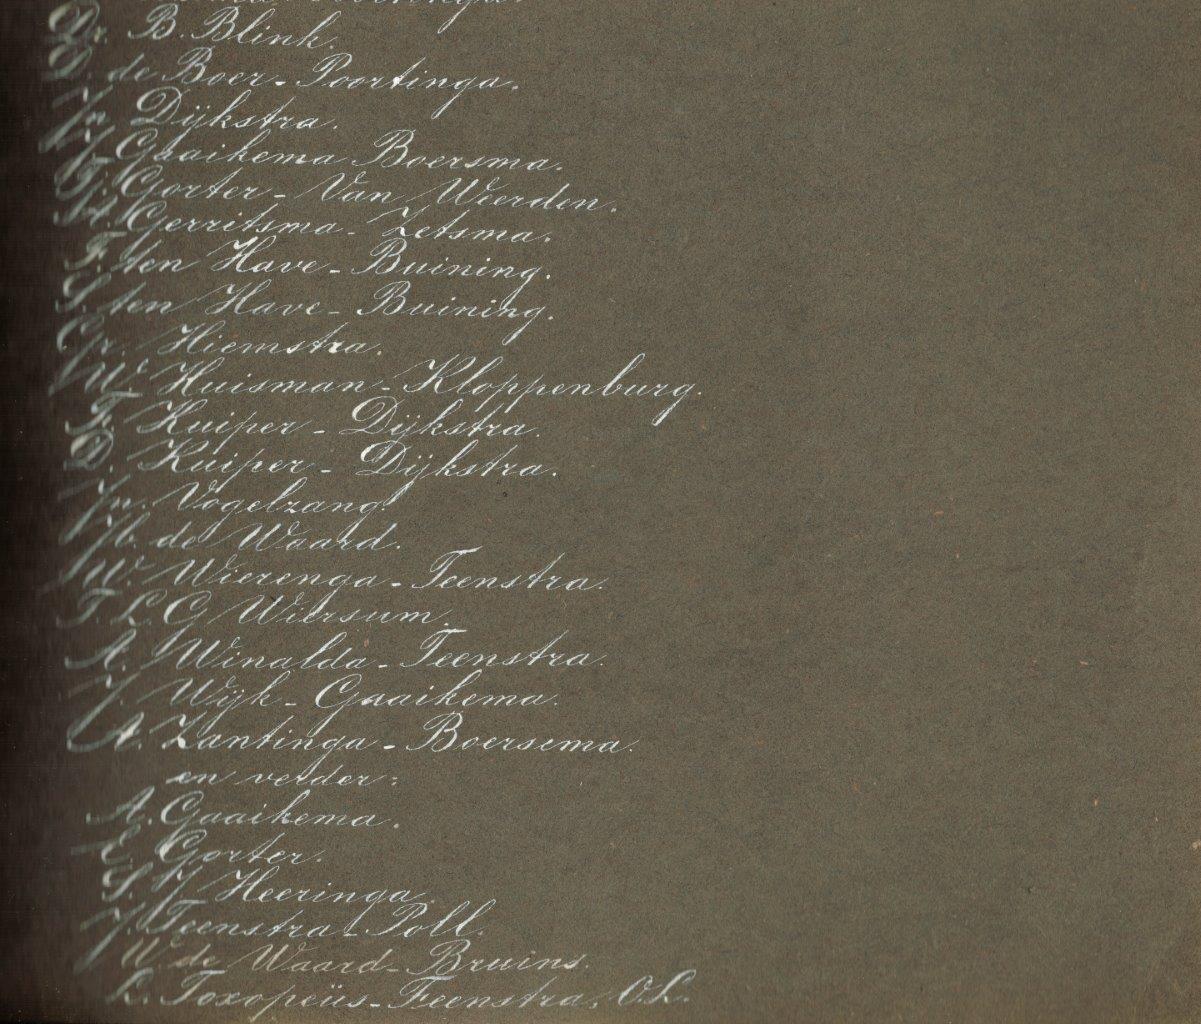 Dr. B. Blink.
D. de Boer - Poortinga.
Jn Dijkstra.
J. Gaaikema Boersma.
G. Gorter - Van Weerden.
H. Gerritsma - Zetsma.
F. ten Have - Buining.
S. ten Have - Buining.
Gr. Hiemstra.
W. Huisman - Kloppenburg.
F. Kuiper - Dijkstra.
D. Kuiper - Dijkstra.
Jn. Vogelzang.
de Waard.
W. Wierenga - Teenstra.
T. L. C. Wiersum.
A. Winalda - Teenstra.
J. Wijk - Gaaikema.
A. Zantinga - Boersema.
en verder:
A. Gaaikema.
E. Gorter.
S. J. Heeringa.
J. Teenstra - Poll.
W. de Waard - Bruins.
L. Toxopeüs - Teenstra, O.L.